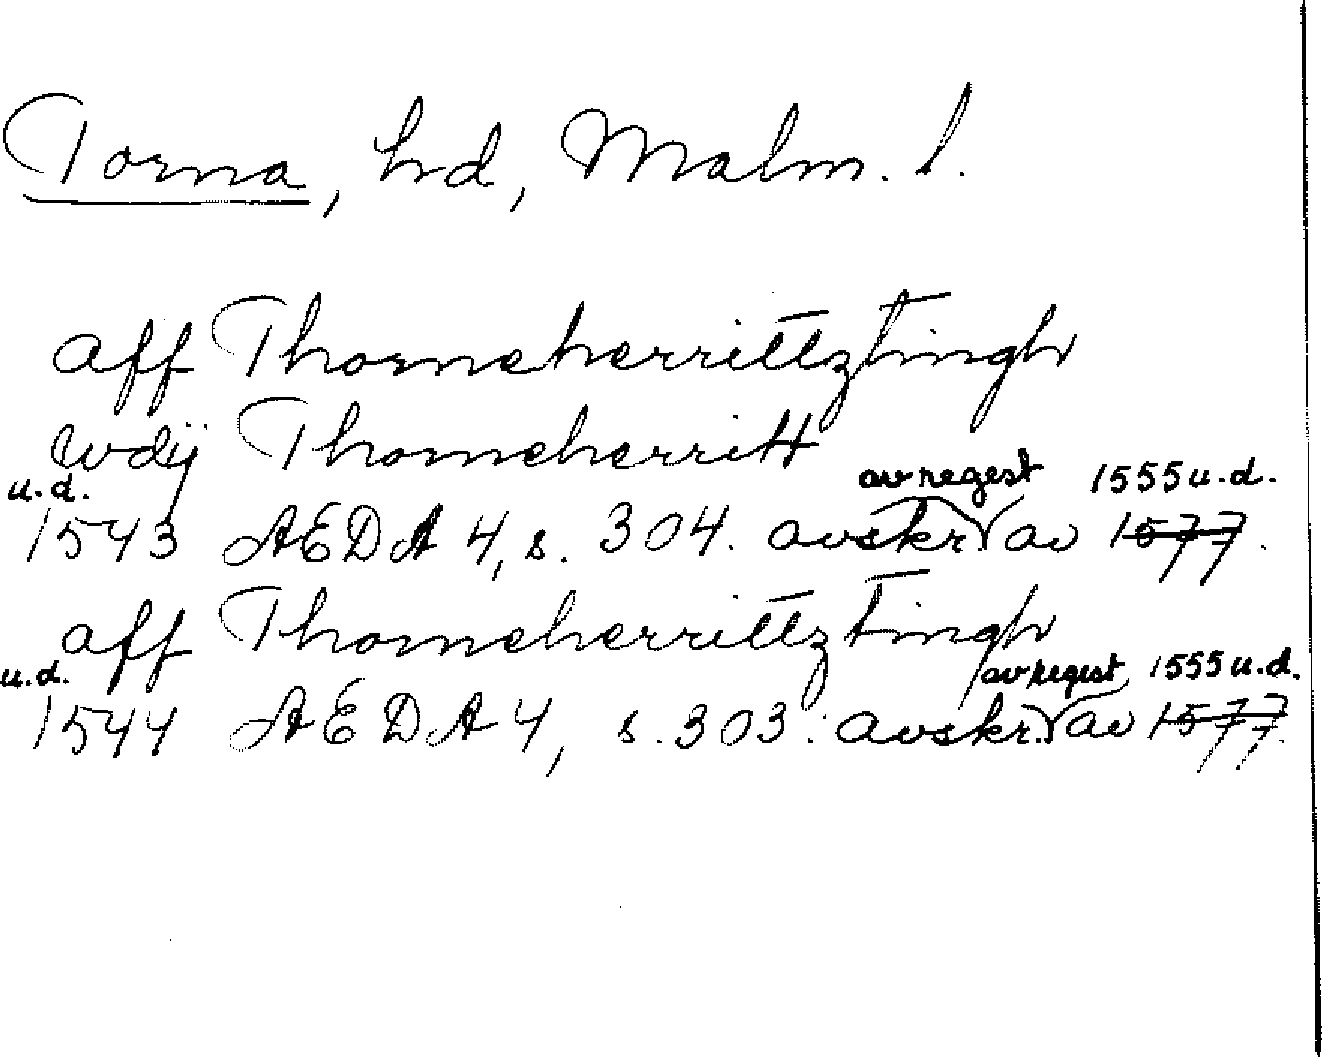 Torna, hd, Malm. l.
aff Thorneherrittztingh
wdij Thorneherritt
u.d. av regest 1555 u.d.
1543 AEDA 4, s. 304. avskr. av 1577.
aff Thorneherrittz tingh
u.d. av regest 1555 u.d.
1544 AEDA 4, s. 303. avskr. av 1577.